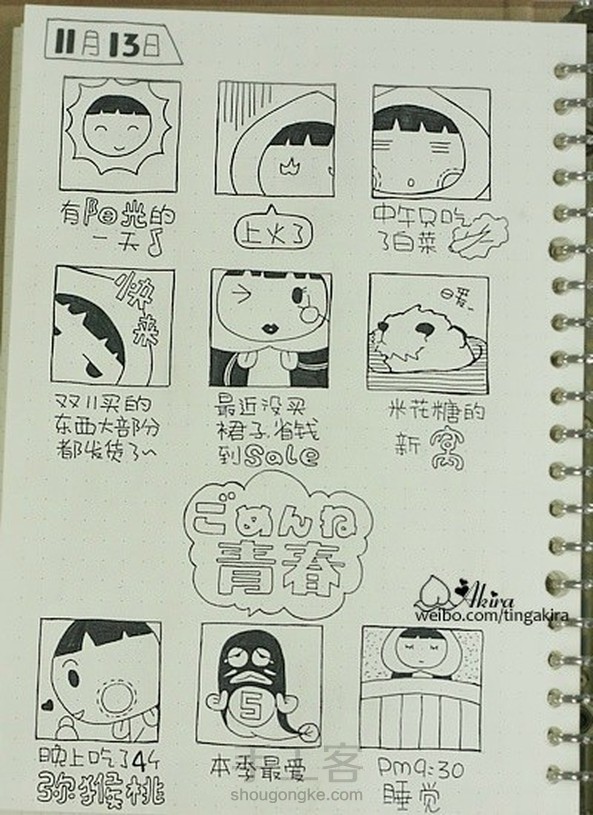 11月13日
有阳光的
一天了
上火了
中午只吃
了白菜
快
来
双11买的
东西大部分
都发货了~
最近没买
裙子,省钱
到Sale
暖~
米花糖的
新窝
ごめんね
青春
Akira
weibo.com/tingakira
晚上吃了4个
弥猴桃
5
本季最爱
手工客
shougongke.com
PM9:30
睡觉